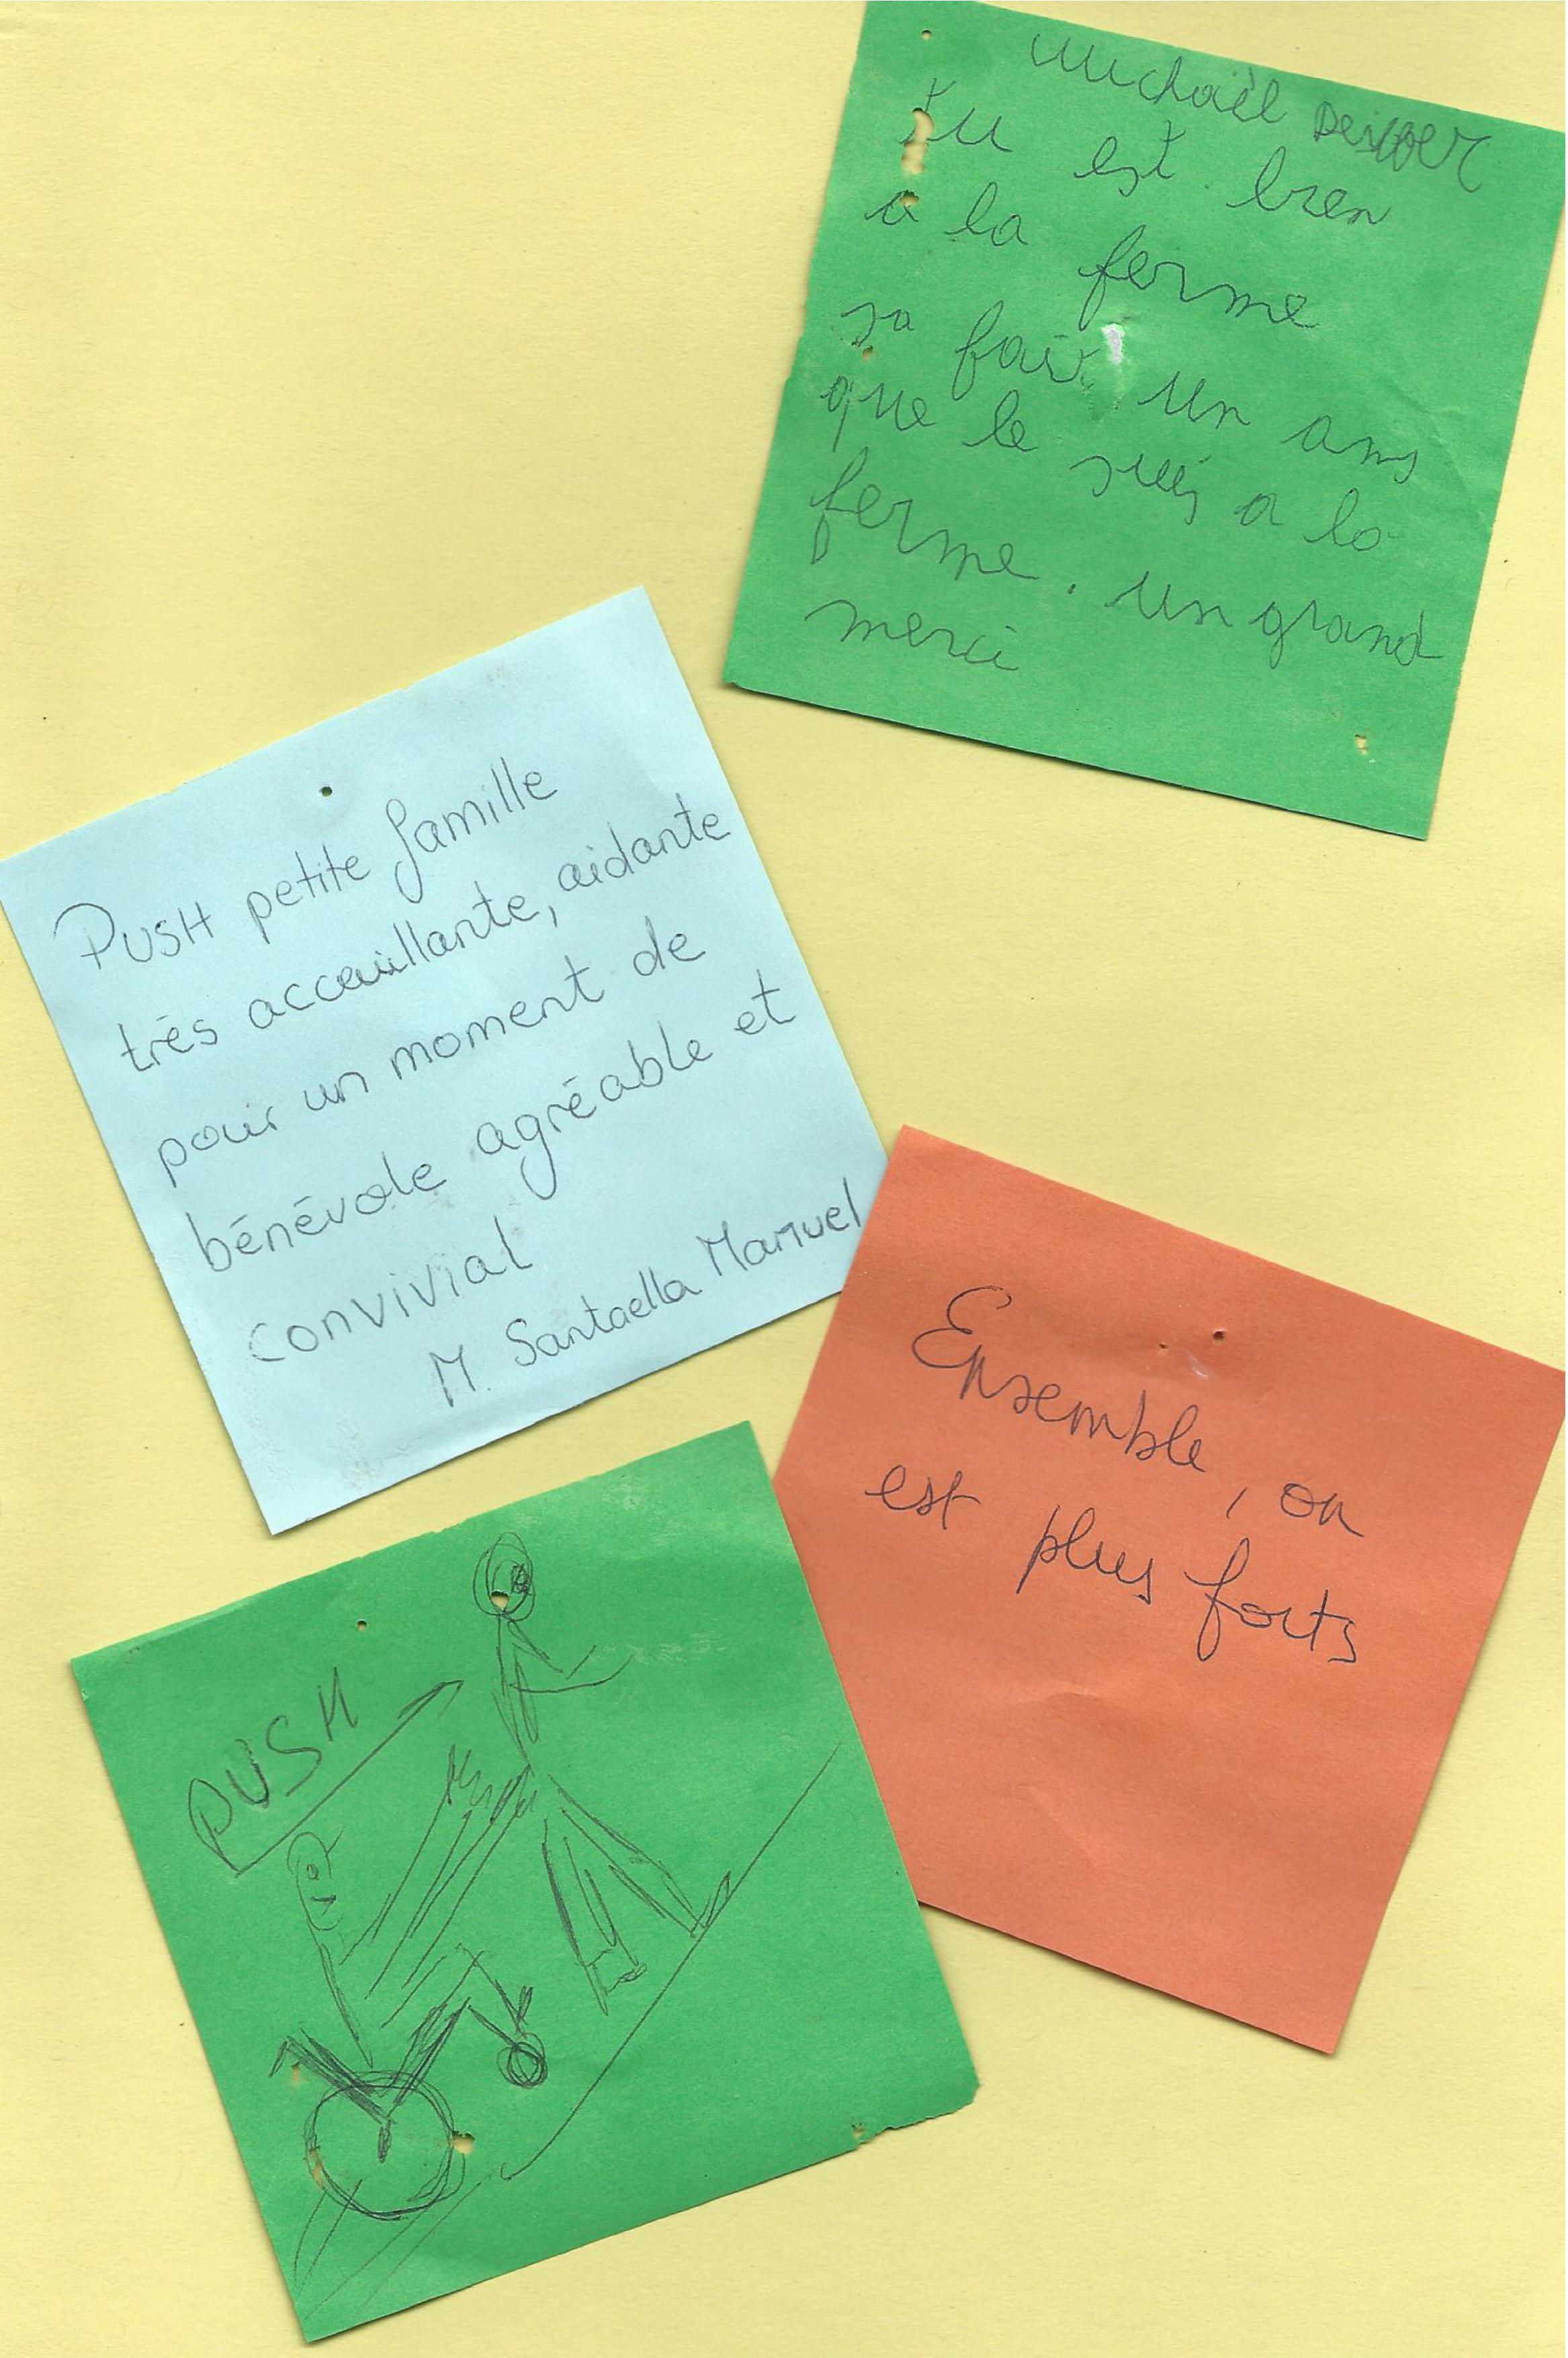 Michaël
tu est bien
a la ferme
sa fait un ans
que le suis a la
ferme. un grand
merci
PUSH petite famille
très acceuillante, aidante
pour un moment de
bénévole agréable et
convivial
M. Santaella Manuel
Ensemble, on
est plus forts
PUSH